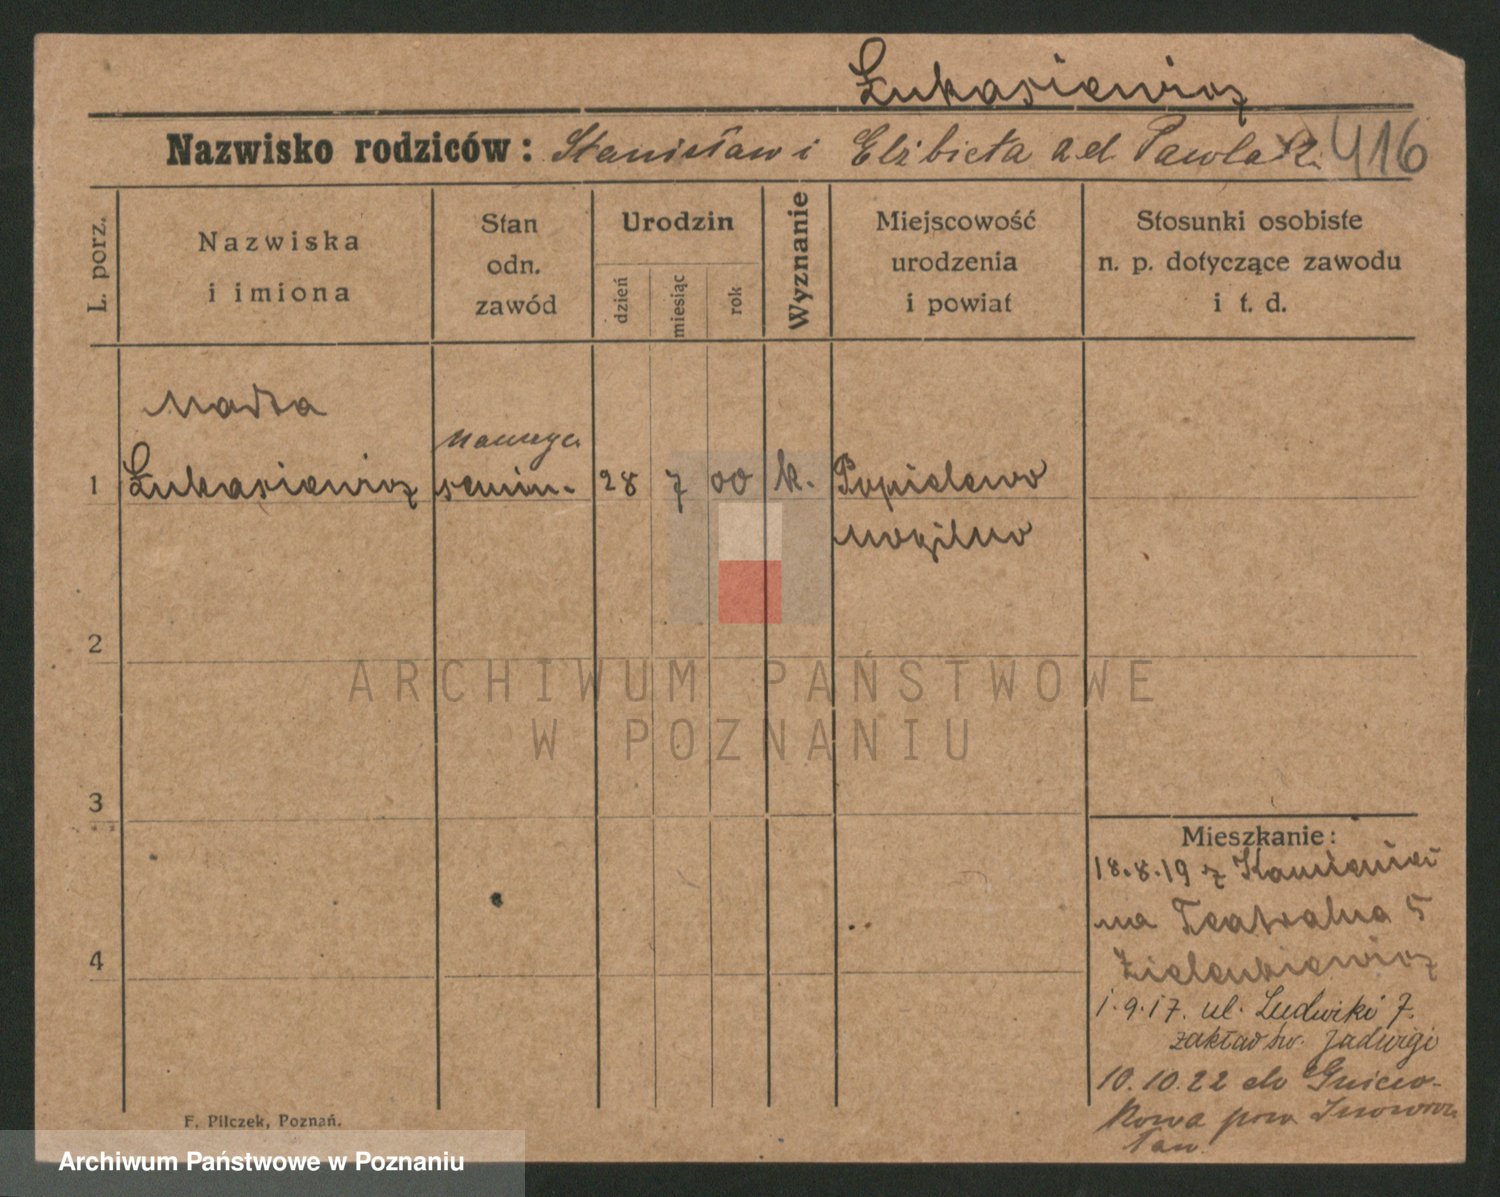 Łukasiewicz
Nazwisko rodziców: Stanisław i Elżbieta z d. Pawlak. 416
L. porz.
Nazwiska
i imiona
Stan
odn.
zawód
Urodzin
dzień
miesiąc
rok
Wyznanie
Miejscowość
urodzenia
i powiat
Stosunki osobiste
n. p. dotyczące zawodu
i t. d.
naucz.
1 Łukasiewicz semin. 28 7 00 k. Popielewo
Mogilno
2
3
4
Mieszkanie:
18.8.19 z
na Teatralna 5
Zielenkiewicz
1.9.17. ul. Ludwiki 7.
zakład św. Jadwigi
10.10.22 do Gniew-
kowa pow. Inowroc
ław.
F. Pilczek, Poznań.
ARCHIWUM PAŃSTWOWE
W POZNANIU
Archiwum Państwowe w Poznaniu